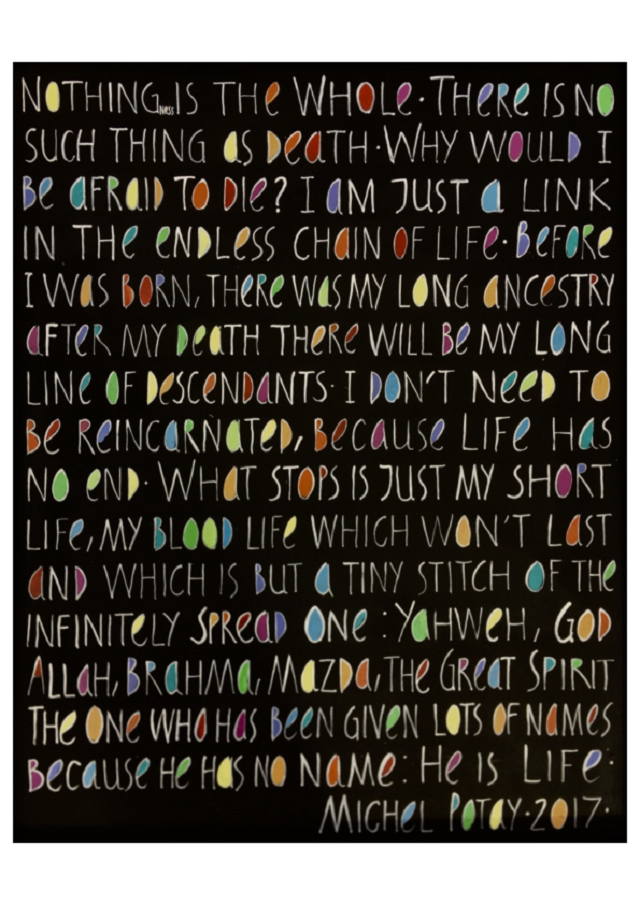 NOTHINGNESS IS THE WHOLE · THERE IS NO
SUCH THING AS DEATH · WHY WOULD I
BE AFRAID TO DIE? I AM JUST A LINK
IN THE ENDLESS CHAIN OF LIFE · BEFORE
I WAS BORN, THERE WAS MY LONG ANCESTRY
AFTER MY DEATH THERE WILL BE MY LONG
LINE OF DESCENDANTS · I DON'T NEED TO
BE REINCARNATED, BECAUSE LIFE HAS
NO END · WHAT STOPS IS JUST MY SHORT
LIFE, MY BLOOD LIFE WHICH WON'T LAST
AND WHICH IS BUT A TINY STITCH OF THE
INFINITELY SPREAD ONE : YAHWEH, GOD
ALLAH, BRAHMA, MAZDA, THE GREAT SPIRIT
THE ONE WHO HAS BEEN GIVEN LOTS OF NAMES
BECAUSE HE HAS NO NAME : HE IS LIFE ·
MICHEL POTAY · 2017 ·